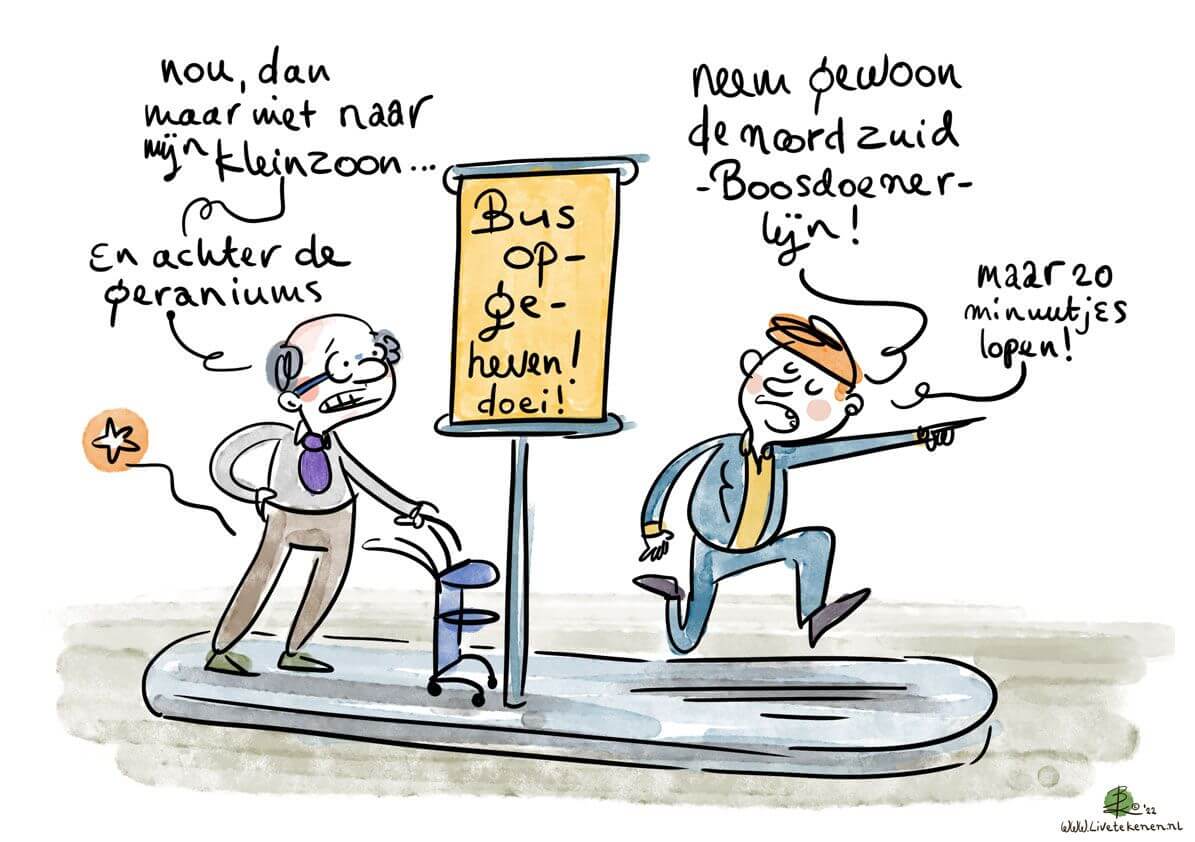 nou, dan
maar niet naar
mijn kleinzoon...
En achter de
geraniums
Bus
op-
ge-
heven!
doei!
neem gewoon
de noordzuid
-Boosdoener-
lijn!
maar 20
minuutjes
lopen!
© '22
www.Livetekenen.nl